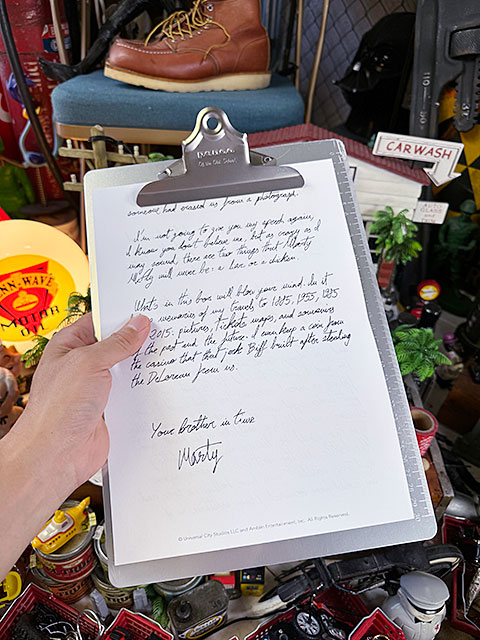 PENCO
Ol' We Old School
someone had erased us from a photograph.
I'm not going to give you my speech again,
I know you don't believe me, but as crazy as I
may sound, there are two things that Marty
McFly will never be: a liar or a chicken.
What's in this box will blow your mind. In it
are memories of my travels to 1885, 1955, 1985
2015: pictures, tickets, maps, and souvenirs
of the past and the future. I even keep a coin from
the casino that that jerk Biff built after stealing
the DeLorean from us.
Your brother in time
Marty
© Universal City Studios LLC and Amblin Entertainment, Inc. All Rights Reserved.
CAR WASH
AUTO
GLASS
NN-WAVE
MOTOR
OIL